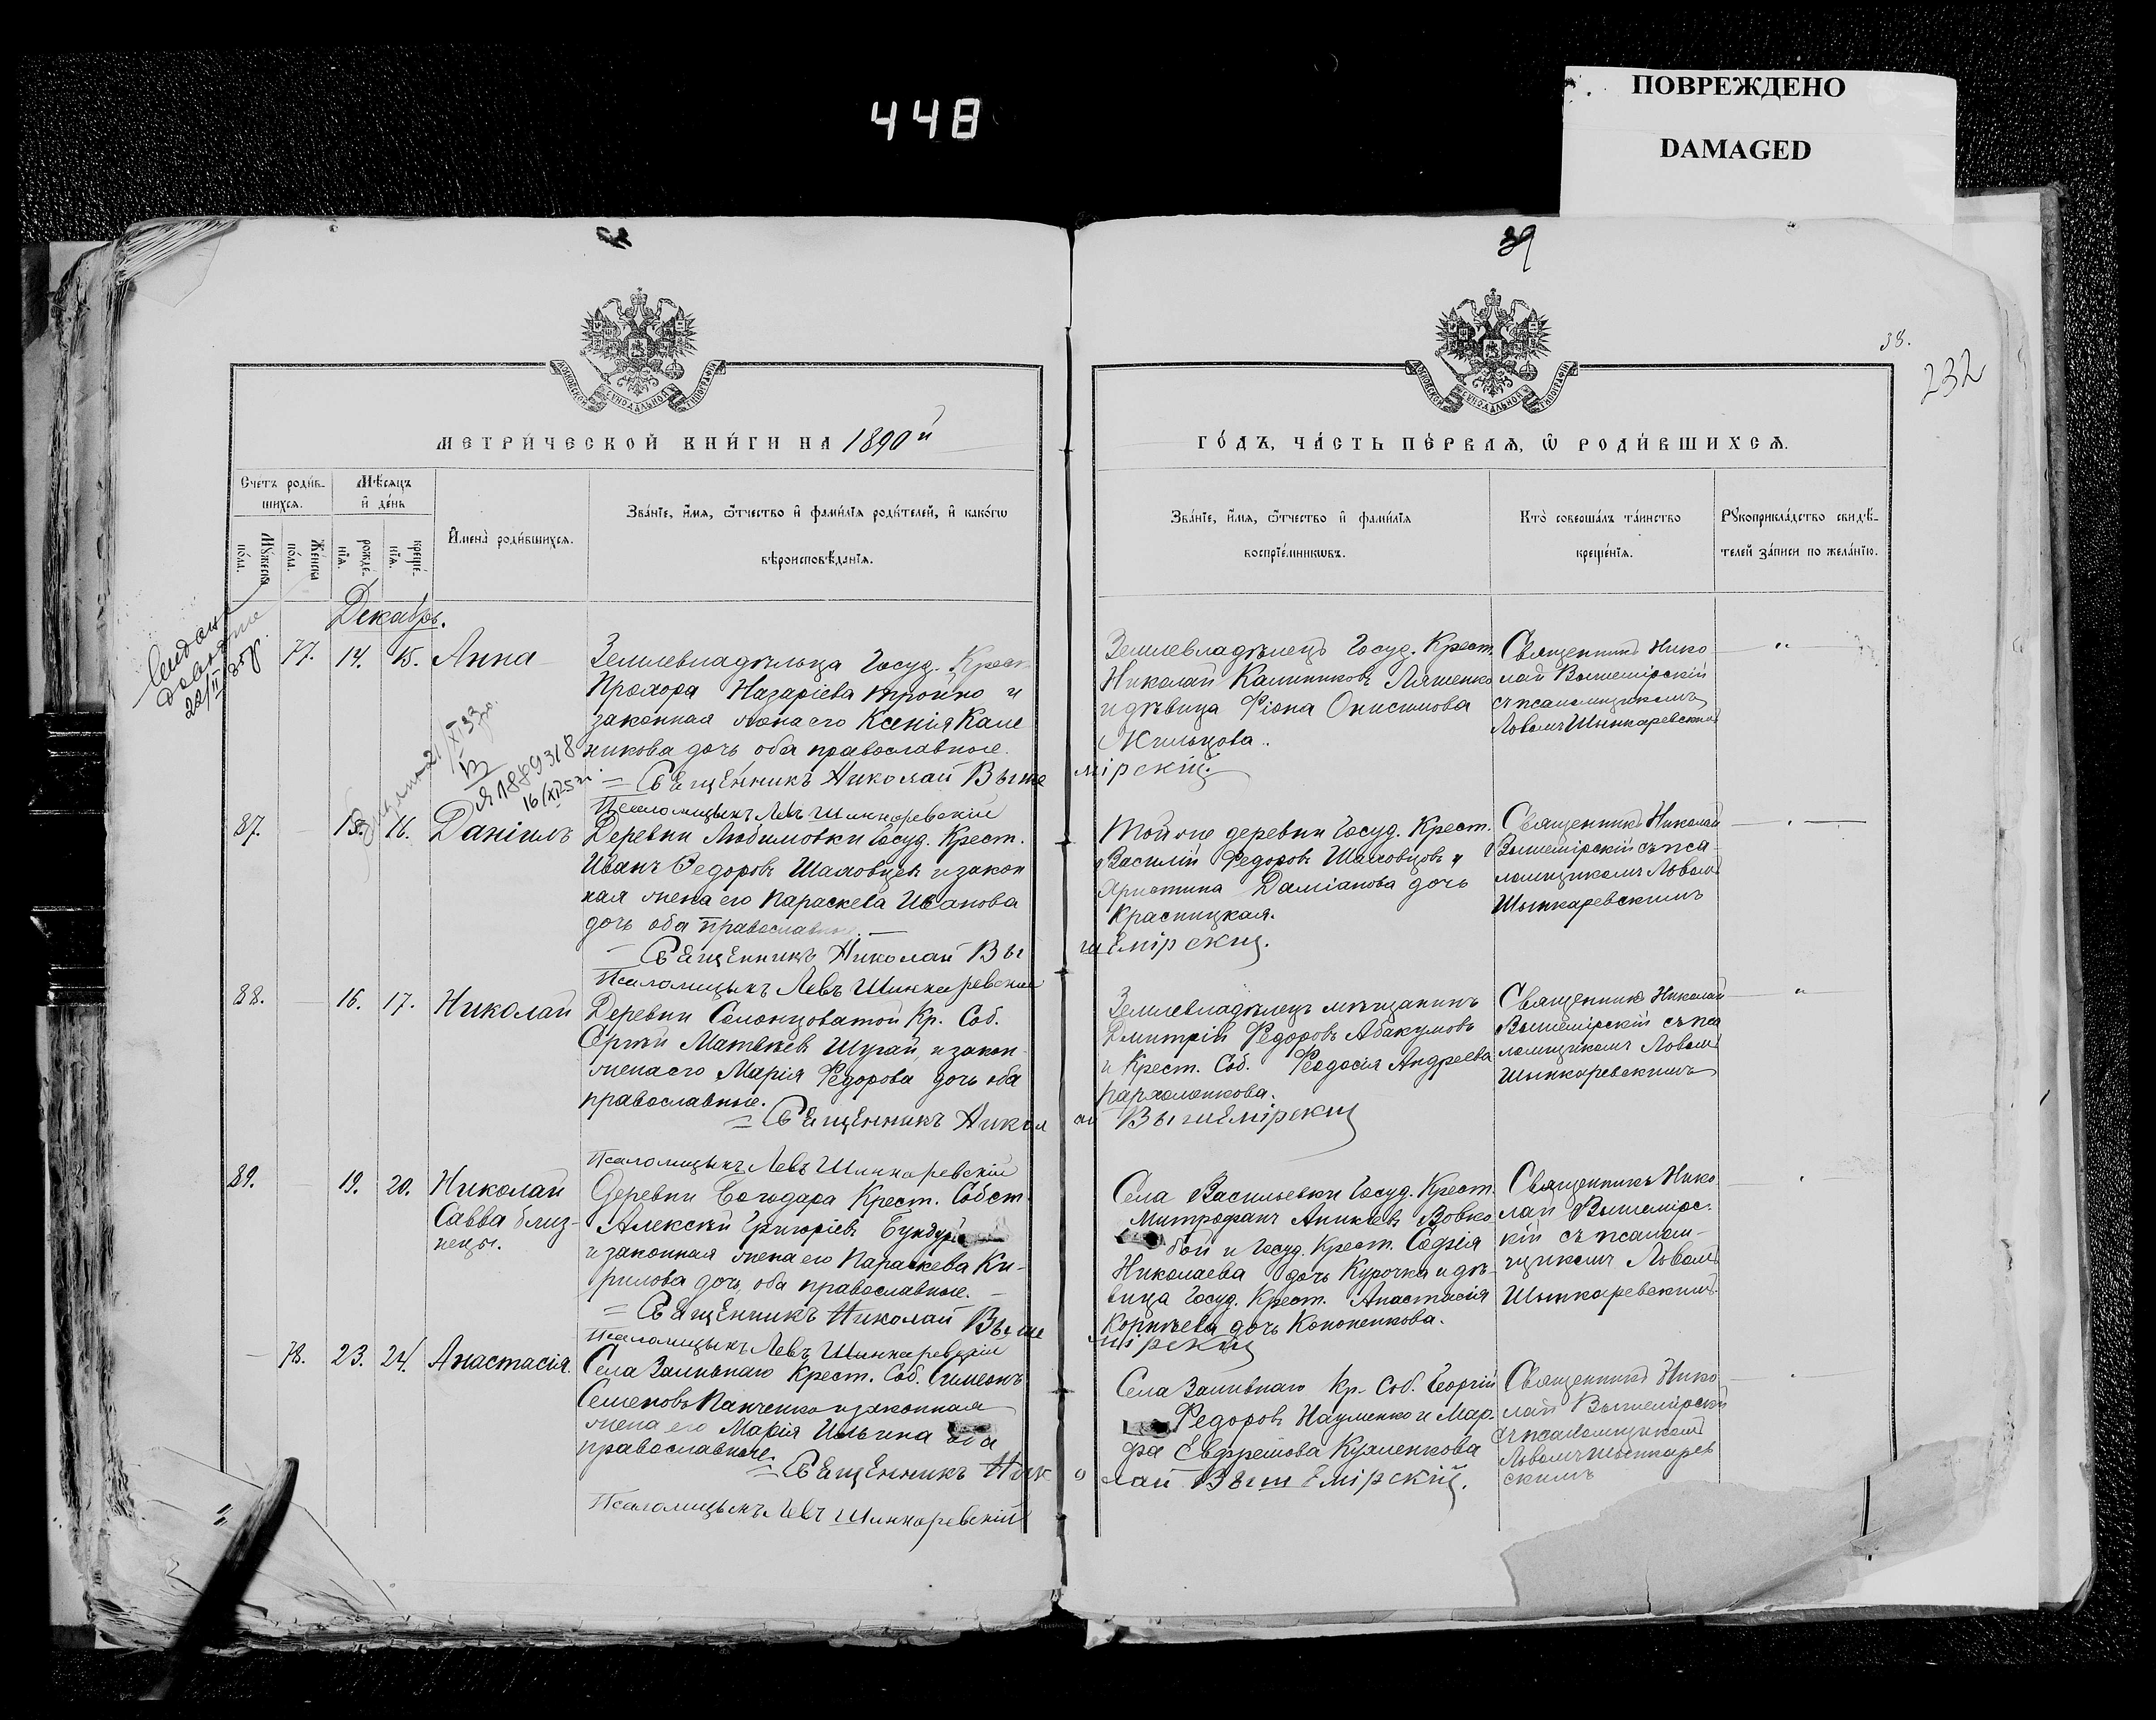 448
ПОВРЕЖДЕНО
DAMAGED
39
38.
232
МОСКОВСКОЙ СѴНОДАЛЬНОЙ ТИПОГРАФІИ
МОСКОВСКОЙ СѴНОДАЛЬНОЙ ТИПОГРАФІИ
МЕТРИ́ЧЕСКОЙ КНИ́ГИ НА 1890й
ГО́ДЪ, ЧА́СТЬ ПЕ́РВАѦ, Ѡ҆ РОДИ́ВШИХСѦ.
Сче́тъ роди́в-
шихсѧ.
Мѣ́сѧцъ
и҆ де́нь
Мꙋ́жеска
по́ла.
Же́нска
по́ла.
рожде́-
нїѧ.
креще́-
нїѧ.
И҆мена̀ роди́вшихсѧ.
Зва́нїе, и҆́мѧ, ѻ҆́тчество и҆ фами́лїѧ роди́телей, и҆ како́гѡ
вѣроисповѣ́данїѧ.
Зва́нїе, и҆́мѧ, ѻ҆́тчество и҆ фами́лїѧ
воспрїе́мникѡвъ.
Кто̀ соверша́лъ та́инство
креще́нїѧ.
Рꙋкоприкла́дство свидѣ́-
телей за́писи по жела́нїю.
Декабрь.
77. 14. 15. Анна
Землевладѣльца Госуд. Крест
Прохора Назаріева и
законная жена его Ксенія Кале
никова дочь оба православные.
= Священникъ Николай Выше
мірскій.
Псаломщикъ Левъ Шинкаревскій
Землевладѣлецъ Госуд. Крест.
Николай Калинниковъ Ляшенко
и дѣвица Фіона Онисимова
Жильцова.
Священникъ Нико
лай Вышемірскій
съ псаломщикомъ
Львомъ Шинкаревскимъ
Я 1889318
87. 15. 16. Даніилъ
Деревни Любимовки Госуд. Крест.
Иванъ Ѳедоровъ Шаховцевъ и закон
ная жена его Параскева Иванова
дочь оба православные.
Священникъ Николай Вы
шемірскій.
Псаломщикъ Левъ Шинкаревскій
Той же деревни Госуд. Крест.
Василій Ѳедоровъ Шаховцовъ и
Христина Даміанова дочь
Красницкая.
Священникъ Николай
Вышемірскій съ пса
ломщикомъ Львомъ
Шинкаревскимъ
88. 16. 17. Николай
Деревни Солонцоватой Кр. Соб.
Сергѣй Матвѣевъ Шугай, и закон
жена его Марія Ѳедорова дочь оба
православные.
= Священникъ Никол
ай Вышемірскій
Псаломщикъ Левъ Шинкаревскій
Землевладѣлецъ мѣщанинъ
Дмитрій Ѳедоровъ Абакумовъ
и Крест. Соб. Ѳеодосія Андреева
Пархоменкова.
Священникъ Николай
Вышемірскій съ пса
ломщикомъ Львомъ
Шинкаревскимъ
89. 19. 20. Николай
Савва близ-
нецы.
Деревни Богодара Крест. Собст.
Алексѣй Григоріевъ
и законная жена его Параскева Ки-
рилова дочь, оба православные.
= Священникъ Николай Выше
мірскій
Псаломщикъ Левъ Шинкаревскій
Села Васильевки Госуд. Крест.
Митрофанъ Аникіевъ Вовко
бой и Госуд. Крест. Софія
Николаева дочь Курочка и дѣ-
вица Госуд. Крест. Анастасія
Корнѣева дочь Кононенкова.
Священникъ Нико
лай Вышемірс.
кій съ псалом-
щикомъ Львомъ
Шинкаревскимъ.
78. 23. 24. Анастасія.
Села Заливнаго Крест. Соб. Симеонъ
Семеновъ Панченко и законная
жена его Марія Ильина оба
православные.
= Священникъ Ник
олай Вышемірскій.
Псаломщикъ Левъ Шинкаревскій
Села Заливнаго Кр. Соб. Георгій
Ѳедоровъ Науменко и Мар-
фа Евфремова
Священникъ Нико
лай Вышемірскій
съ псаломщикомъ
Львомъ Шинкарев
скимъ